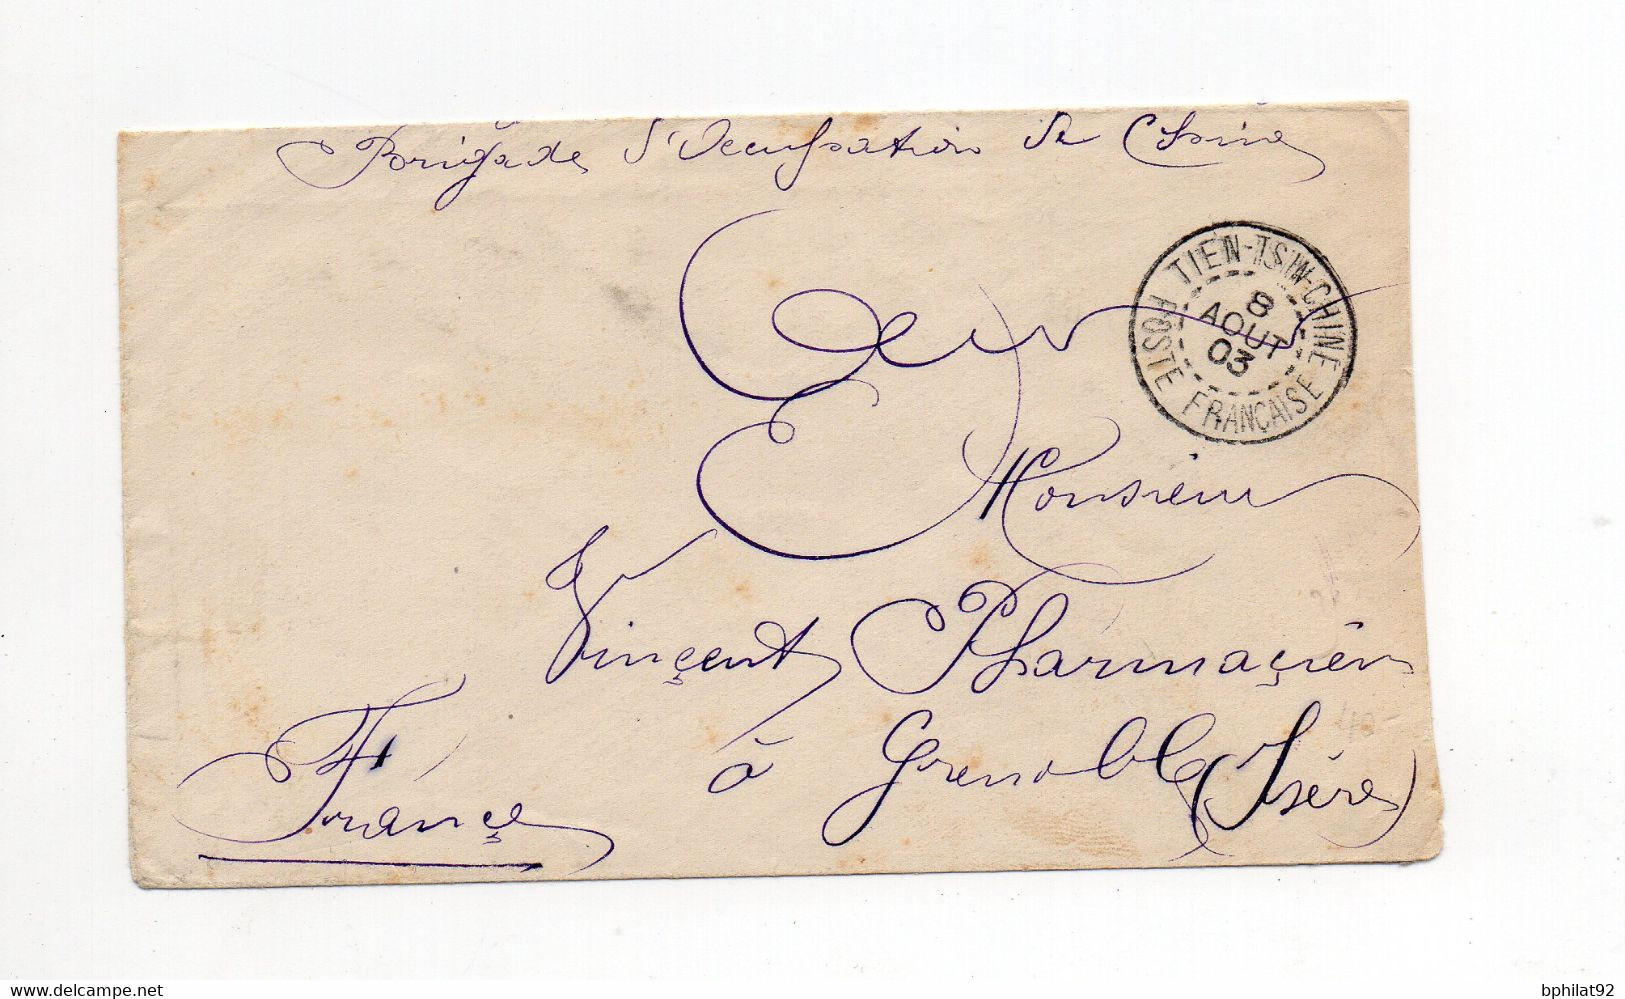 Brigade d'Occupation de Chine
TIEN-TSIN-CHINE
8
AOUT
03
POSTE FRANÇAISE
Monsieur
Vinçent Pharmaçien
à Grenoble (Isère)
Françe
bphilat92